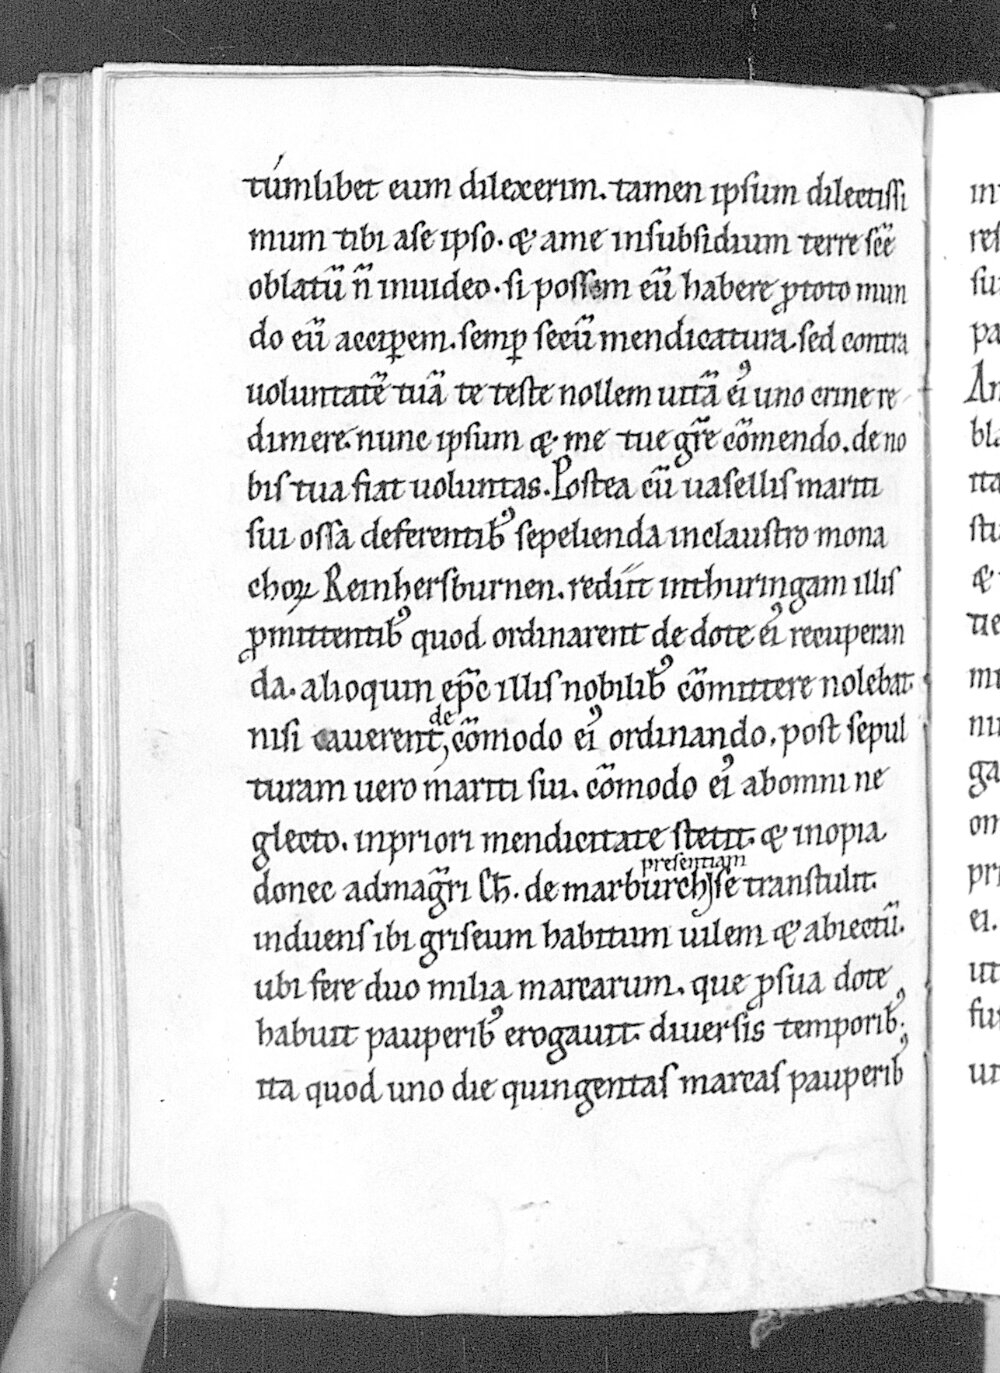 túmlibet eum dilexerim. tamen ipsum dilectissi
mum tibi ase ipso. & ame insubsidium terre sc̄e
oblatū n̄ inuideo. si possem eū habere ꝓtoto mun
do eū acciꝑem. semꝑ secū mendicatura. sed contra
uoluntatē tuā te teste nollem uitā eiꝰ uno crine re
dimere. nunc ipsum & me tue gr̄e cōmendo. de no
bis tua fiat uoluntas. Postea cū uasellis mariti
sui ossa deferentibꝰ sepelienda inclaustro mona
choꝝ Reinhersburnen. rediit inthuringam illis
ꝓmittentibꝰ quod ordinarent de dote eiꝰ recuperan
da. alioquin ep̄c illis nobilibꝰ cōmittere nolebat.
nisi cauerent, de cōmodo eiꝰ ordinando. post sepul
turam uero mariti sui. cōmodo eiꝰ abomni ne
glecto. inpriori mendicitate stetit. & inopia
donec admaḡri Cħ. de marburch presentiam se transtulit.
induens ibi griseum habitum uilem & abiectū.
ubi fere duo milia marcarum. que ꝓsua dote
habuit pauperibꝰ erogauit. diuersis temporibꝰ.
ita quod uno die quingentas marcas pauperibꝰ